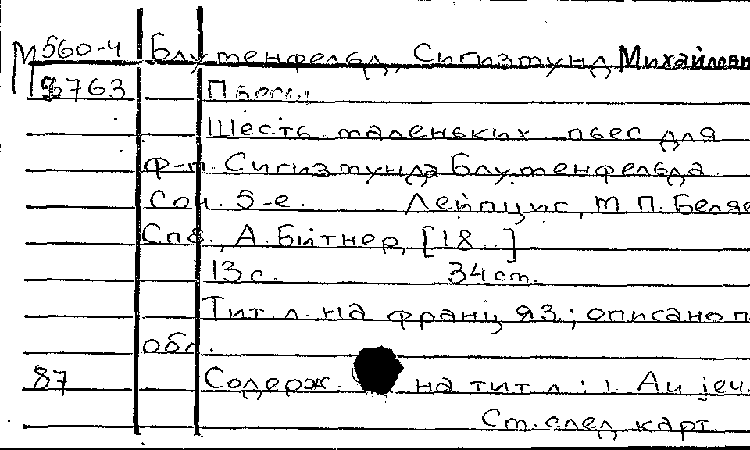 М 560-4 Блуменфельд, Сигизмунд Михайлови
8763 Пьесы
Шесть маленьких пьес для
ф-п. Сигизмунда Блуменфельда
Соч. 5-е. Лейпциг, М. П. Беляе
Спб, А. Битнер, [18..]
13 с. 34 ст.
Тит л. на франц яз; описано п
обл.
87 Содерж. на тит л: 1.
Ст. след карт